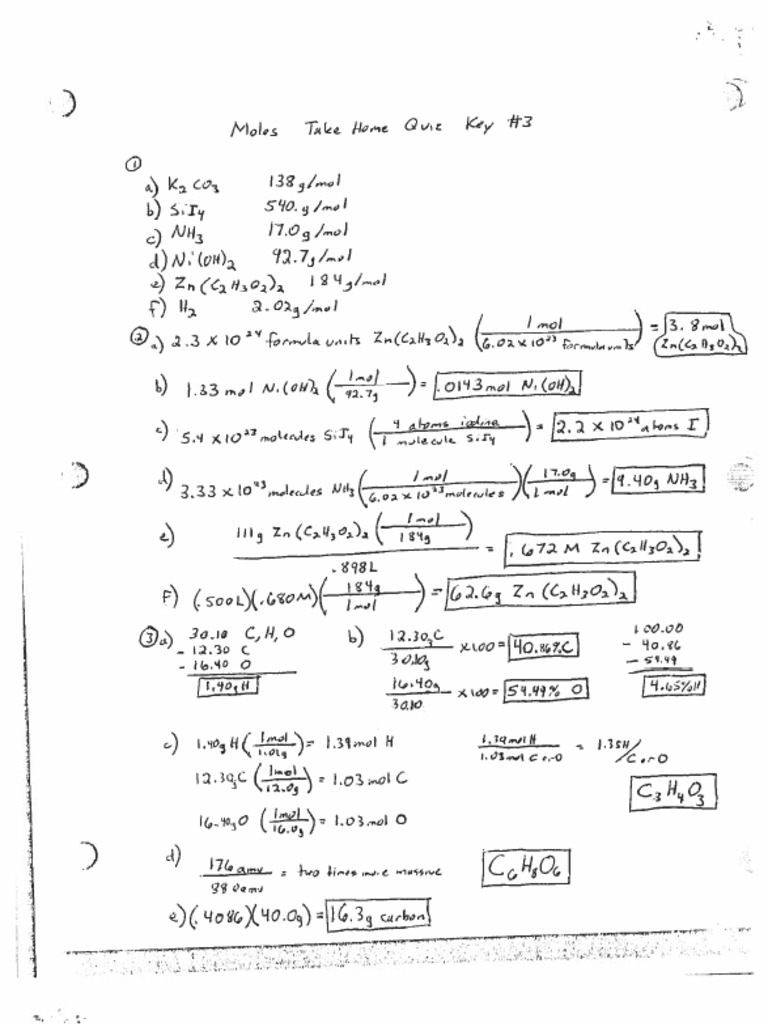 Moles Take Home Quiz Key #3
①
a) K₂CO₃ 138 g/mol
b) SiI₄ 540. g/mol
c) NH₃ 17.0 g/mol
d) Ni(OH)₂ 92.7 g/mol
e) Zn(C₂H₃O₂)₂ 184 g/mol
f) H₂ 2.02 g/mol
② a) 2.3 × 10²⁴ formula units Zn(C₂H₃O₂)₂ (1 mol / 6.02 × 10²³ formula units) = 3.8 mol Zn(C₂H₃O₂)₂
b) 1.33 mol Ni(OH)₂ (1 mol / 92.7g) = .0143 mol Ni(OH)₂
c) 5.4 × 10²³ molecules SiI₄ (4 atoms iodine / 1 molecule SiI₄) = 2.2 × 10²⁴ atoms I
d) 3.33 × 10²³ molecules NH₃ (1 mol / 6.02 × 10²³ molecules)(17.0g / 1 mol) = 9.40g NH₃
e) 111g Zn(C₂H₃O₂)₂ (1 mol / 184g) / .898L = .672 M Zn(C₂H₃O₂)₂
F) (.500L)(.680M)(184g / 1 mol) = 62.6g Zn(C₂H₃O₂)₂
③ a) 30.10 C,H,O
- 12.30 C
- 16.40 O
1.40g H
b) 12.30g C / 30.10g × 100 = 40.86% C
16.40g / 30.10 × 100 = 54.49% O
100.00
- 40.86
- 54.49
4.65% H
c) 1.40g H (1 mol / 1.01g) = 1.39 mol H
12.30g C (1 mol / 12.0g) = 1.03 mol C
16.40g O (1 mol / 16.0g) = 1.03 mol O
1.39 mol H / 1.03 mol C or O = 1.35 H / C or O
C₃H₄O₃
d) 176 amu / 88.0 amu = two times more massive
C₆H₈O₆
e) (.4086)(40.0g) = 16.3g carbon